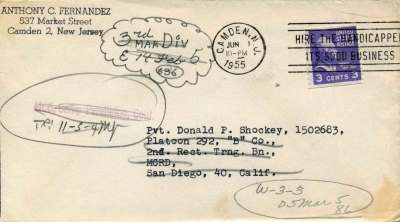 ANTHONY C. FERNANDEZ
537 Market Street
Camden 2, New Jersey
3rd
MAR Div
696
CAMDEN, N.J.
JUN 1
PM
1955
HIRE THE HANDICAPPED
IT'S GOOD BUSINESS
3 CENTS 3
11-3-
Pvt. Donald P. Shockey, 1502683,
Platoon 292, "B" Co.,
2nd. Rect. Trng. Bn.,
MCRD,
San Diego, 40, Calif.
W-3-3
D5 Mar 5